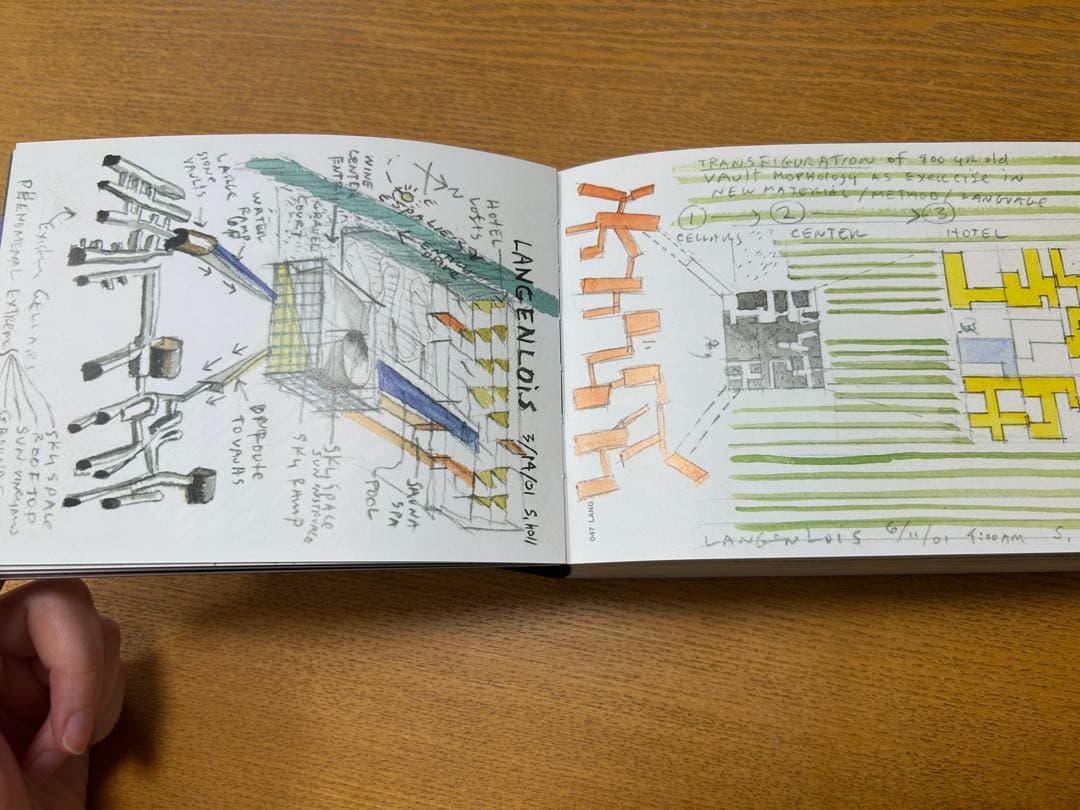 LANGENLOIS 3/14/01 S. HOll
HOTEL
LOFTS
N
WINE
CENTER
ENTRY
GRAVEL
COURT
WATER
RAMP
LARGE
STONE
VAULTS
EXISTING CELLARS
PHENOMENAL EXTREMES
SKY SPACE
ROOFTOP
SUN VINEYARD
ROUTE
TO VAULTS
SKY SPACE
SKY RAMP
POOL
SAUNA
SPA
TRANSFIGURATION of 900 yr old
VAULT MOPHOLOGY AS EXERCISE IN
NEW MATERIAL / METHOD / LANGUAGE
1 2 3
CELLARS CENTER HOTEL
LANGENLOIS 6/11/01 4:00AM S.
047 LANG